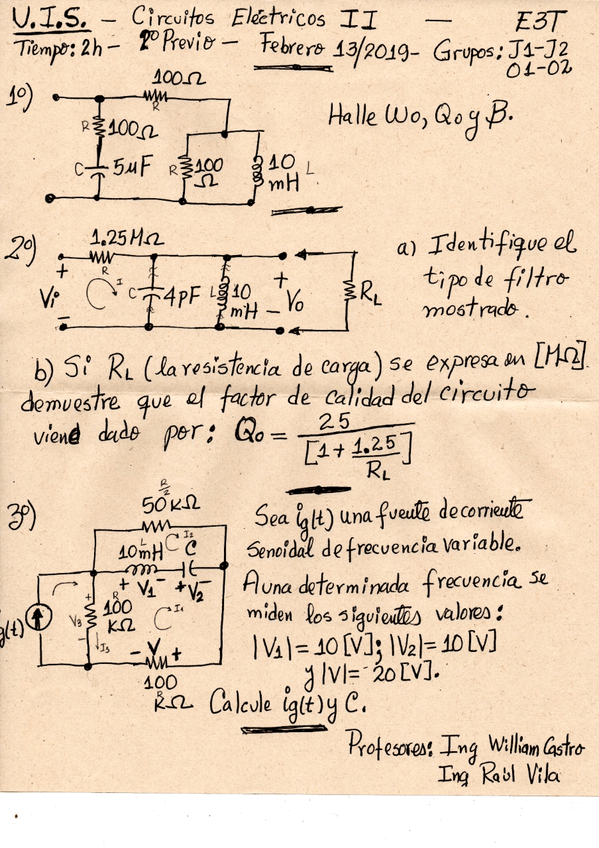 U.I.S. - Circuitos Eléctricos II — E3T
Tiempo: 2h - 2º Previo - Febrero 13/2019 - Grupos: J1-J2
O1-O2
1º)
100Ω
R
R 100Ω
C 5μF
R 100
Ω
10
mH L
Halle Wo, Qo y β.
2º)
1.25MΩ
R
+
Vi
-
I
C 4pF
L 10
mH
+
Vo
-
RL
a) Identifique el
tipo de filtro
mostrado.
b) Si RL (la resistencia de carga) se expresa en [MΩ]
demuestre que el factor de calidad del circuito
viene dado por: Qo = 25 / [1 + 1.25/RL]
3º)
R/2
50KΩ
I2
L
10mH
C
+ V1 -
+ V2 -
ig(t)
+
V3
-
100
KΩ
R
I3
I1
- V +
100
R
KΩ
Sea ig(t) una fuente de corriente
senoidal de frecuencia variable.
A una determinada frecuencia se
miden los siguientes valores:
|V1| = 10[V]; |V2| = 10[V]
y |V| = 20[V].
Calcule ig(t) y C.
Profesores: Ing William Castro
Ing Raúl Vila